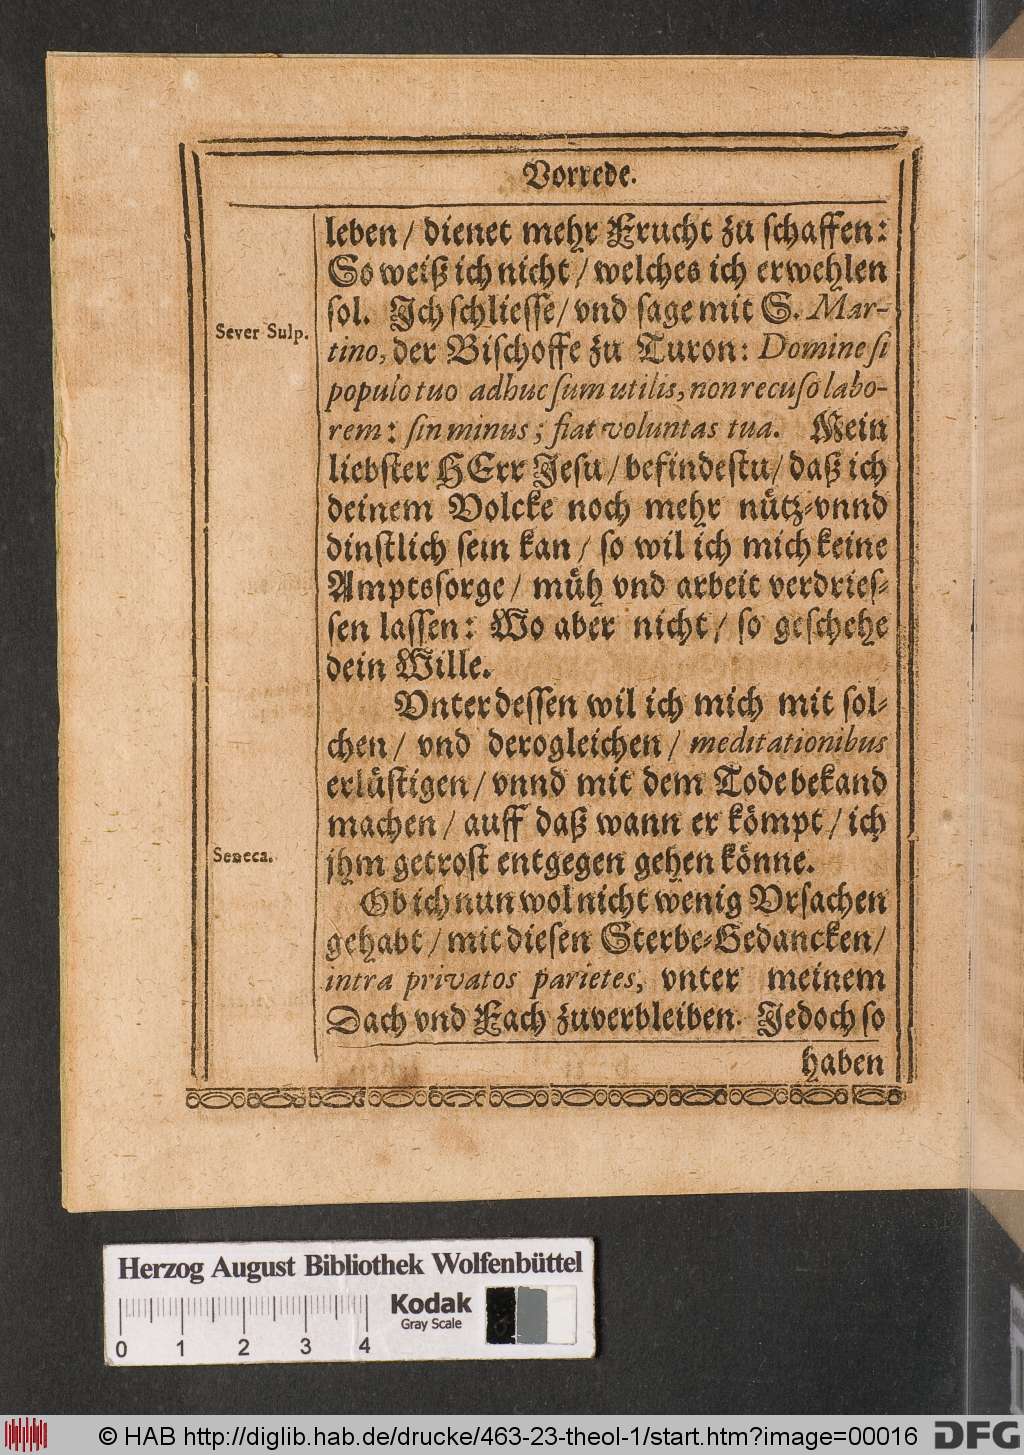 Vorrede.
leben/ dienet mehr Frucht zu schaffen:
So weiß ich nicht/ welches ich erwehlen
sol. Ich schliesse/ vnd sage mit S. Mar-
Sever Sulp.
tino, der Bischoffe zu Turon: Domine si
populo tuo adhuc sum utilis, non recuso labo-
rem: sin minus; fiat voluntas tua. Mein
liebster HErr Jesu/ befindestu/ daß ich
deinem Volcke noch mehr nütz-vnnd
dinstlich sein kan/ so wil ich mich keine
Amptssorge/ müh vnd arbeit verdries-
sen lassen: Wo aber nicht/ so geschehe
dein Wille.
Vnterdessen wil ich mich mit sol-
chen/ vnd derogleichen/ meditationibus
erlüstigen/ vnnd mit dem Tode bekand
machen/ auff daß wann er kömpt/ ich
Seneca.
jhm getrost entgegen gehen könne.
Ob ich nun wol nicht wenig Vrsachen
gehabt/ mit diesen Sterbe-Gedancken/
intra privatos parietes, vnter meinem
Dach vnd Fach zuverbleiben. Jedoch so
haben
Herzog August Bibliothek Wolfenbüttel
Kodak
Gray Scale
0 1 2 3 4
© HAB http://diglib.hab.de/drucke/463-23-theol-1/start.htm?image=00016
DFG